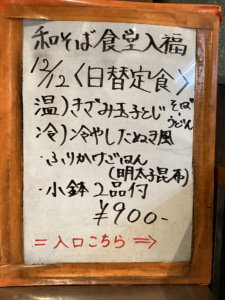 和そば食堂入福
12/12〈日替定食〉
温)きざみ玉子とじ そば・うどん
冷)冷やしたぬき風
・ふりかけごはん
(明太子昆布)
・小鉢2品付
¥900-
=入口こちら⇒